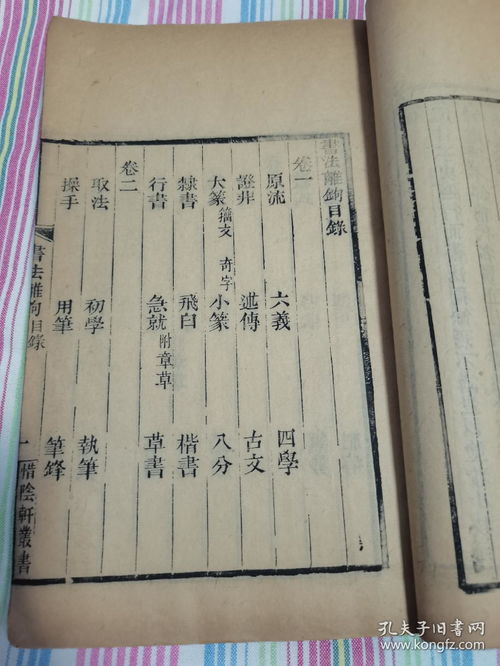 書法離鉤目錄
卷一
原流 六義 四學
證非 述傳 古文
大篆籀文 奇字 小篆 八分
隸書 飛白 楷書
行書 急就附章草 草書
卷二
取法 初學 執筆
操手 用筆 筆鋒
書法離鉤目錄 一 惜陰軒叢書
孔夫子旧书网
www.kongfz.com